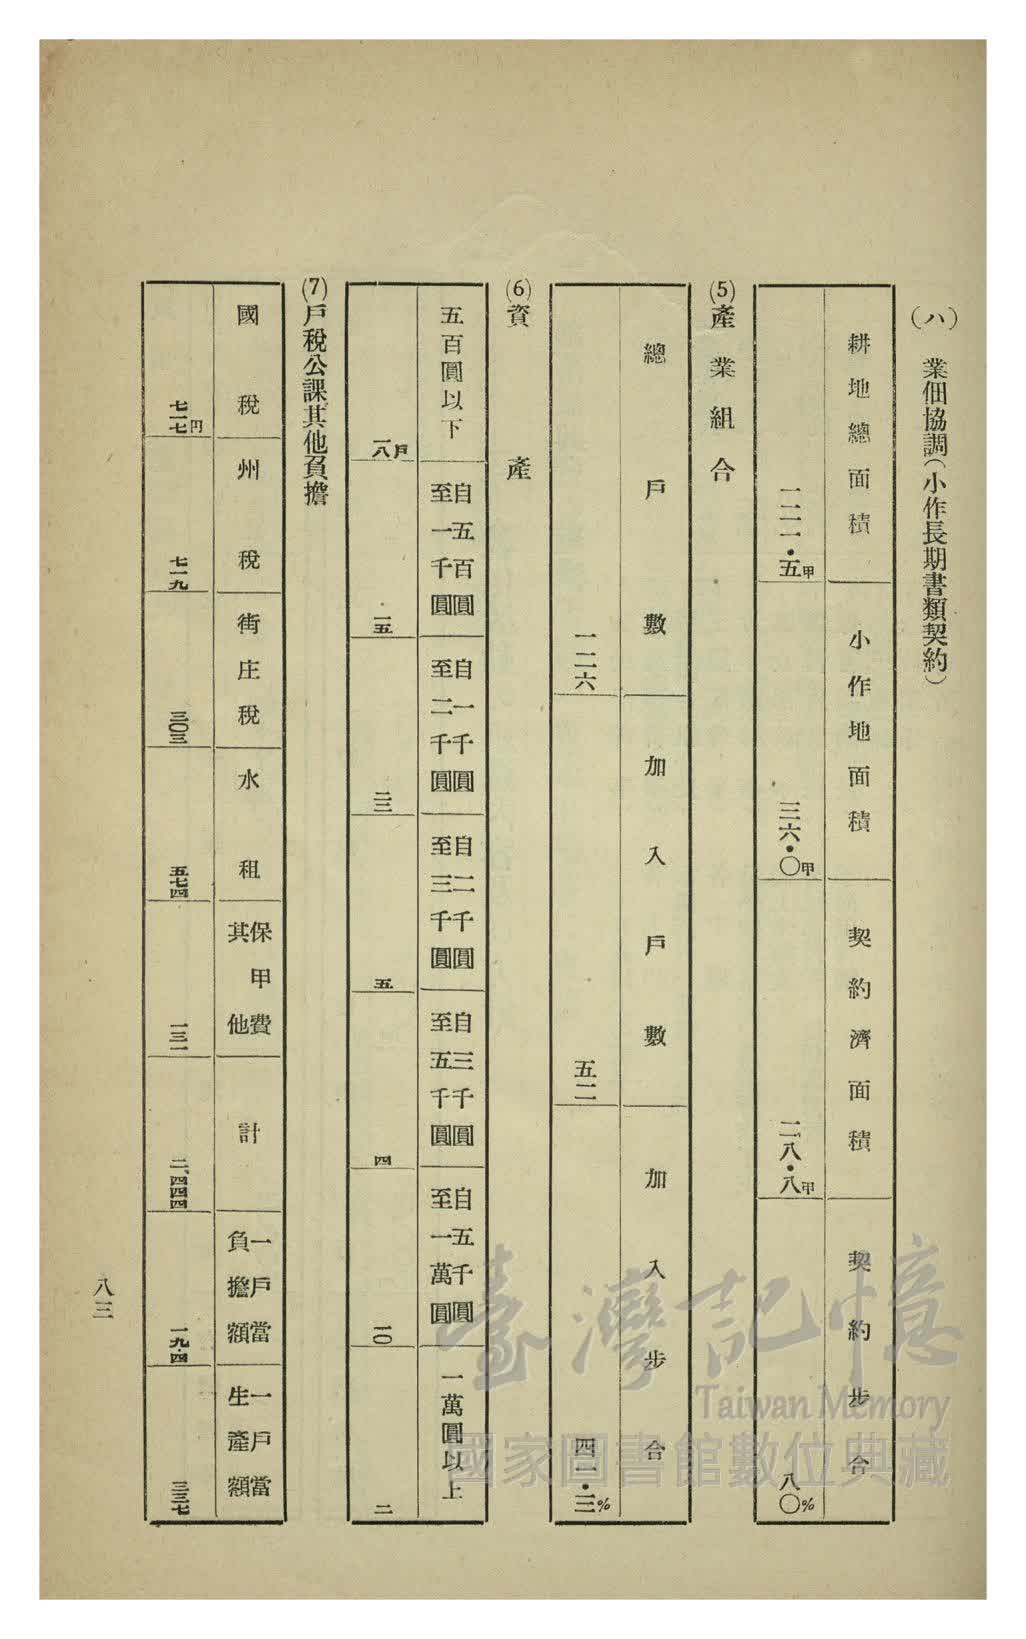 (ハ) 業佃協調(小作長期書類契約)
耕地總面積
一二一・五甲
小作地面積
三六・〇甲
契約濟面積
二八・八甲
契約步合
八〇%
(5)產業組合
總戶數
一二六
加入戶數
五二
加入步合
四一・三%
(6)資產
五百圓以下
一八戶
自五百圓
至一千圓
一五
自一千圓
至二千圓
自二千圓
至三千圓
五
自三千圓
至五千圓
四
自五千圓
至一萬圓
一〇
一萬圓以上
二
(7)戶稅公課其他負擔
國稅
七一七円
州稅
七一九
街庄稅
三〇三
水租
五七四
保甲費
其他
一三一
計
二、四四四
一戶當
負擔額
一九・四
一戶當
生產額
三三七
八三
臺灣記憶
Taiwan Memory
國家圖書館數位典藏